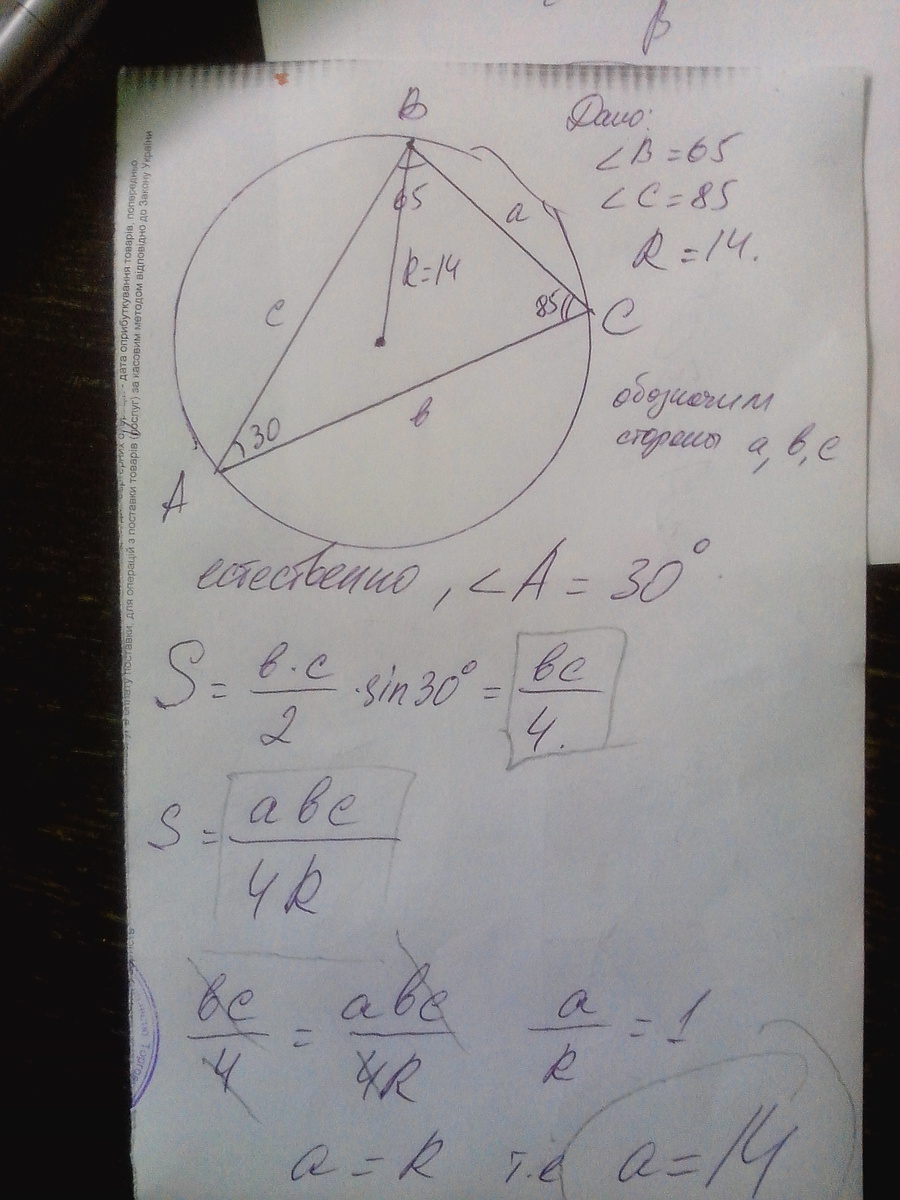 β
B
Дано:
∠B = 65
∠C = 85
R = 14.
65
a
R = 14
c
85
C
30
в
A
обозначим
стороны a, в, c
естественно, ∠A = 30°
S = в·c / 2 · sin30° = вc / 4.
S = aвc / 4R
вc / 4 = aвc / 4R a / R = 1
a = R т.е a = 14
- дата оприбуткування товарів, попередньо
поставки, для операцій з поставки товарів (послуг) за касовим методом відповідно до Закону України